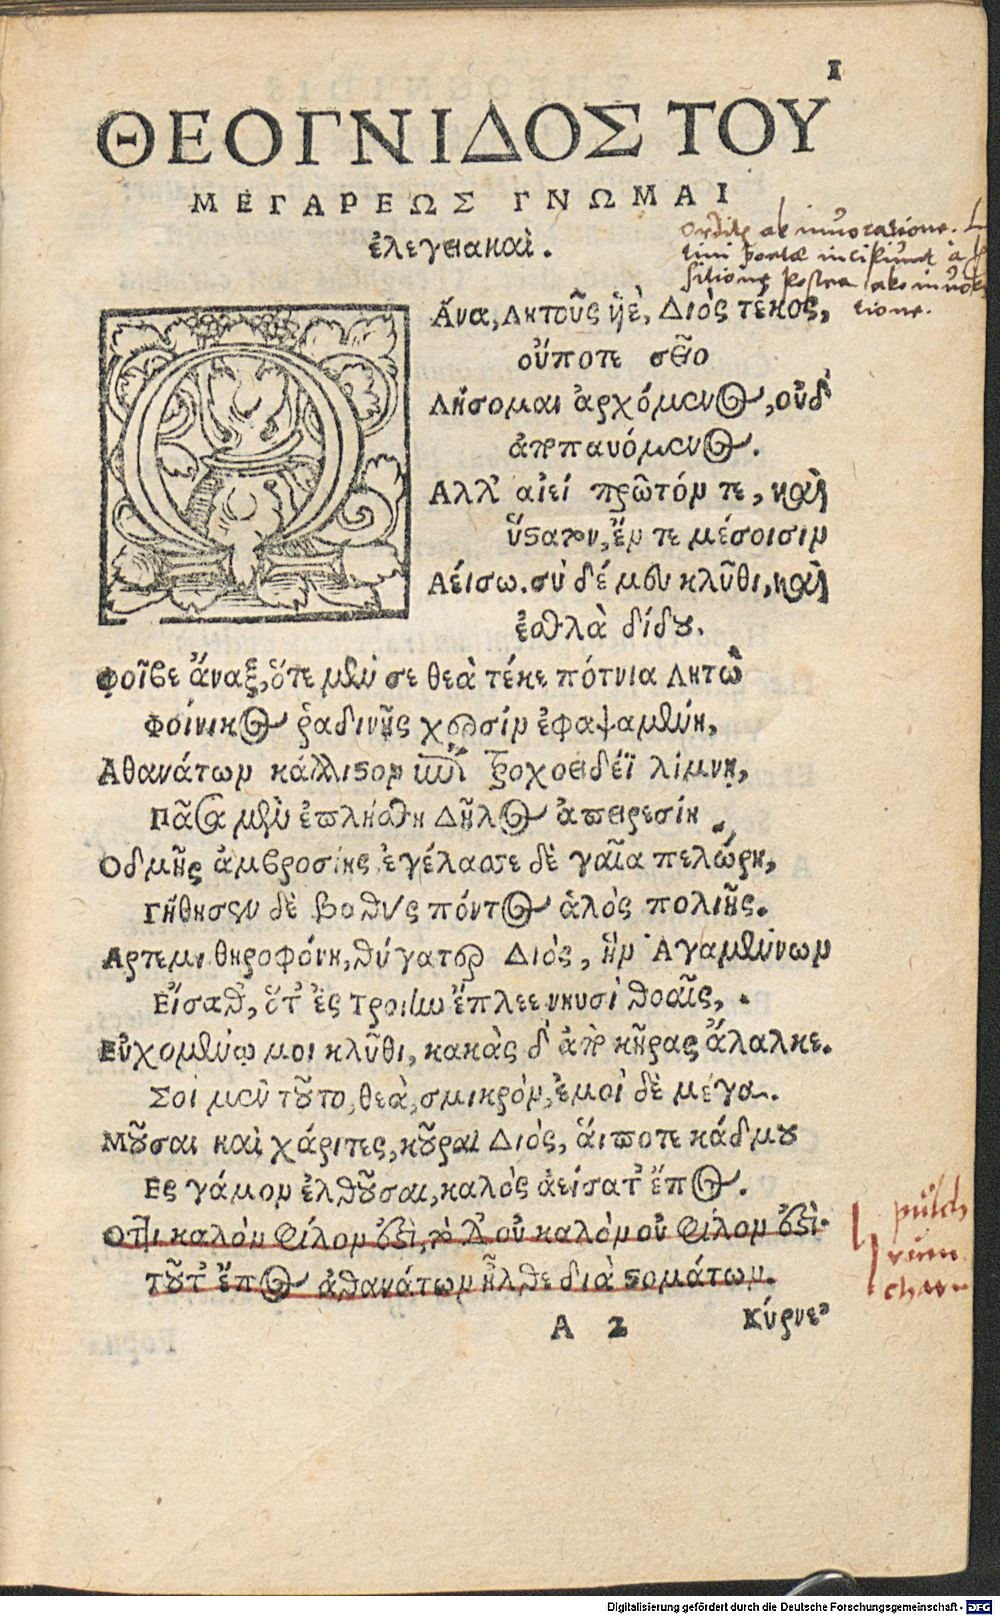 1
ΘΕΟΓΝΙΔΟΣ ΤΟΥ
ΜΕΓΑΡΕΩΣ ΓΝΩΜΑΙ
ἐλεγειακαὶ.
Ordit ab invocatione. La
tini poetae incipiunt à
sitione postea ab invoca
tione.
Ὦ
Ἄνα, Λητοῦς ὑὲ, Διὸς τέκος,
οὔποτε σεῖο
Λήσομαι ἀρχόμενος, οὐδ'
ἀποπαυόμενος.
Αλλ' αἰεί πρῶτόν τε, καὶ
ὕστατον, ἔν τε μέσοισιν
Αείσω. σὺ δέ μου κλῦθι, καὶ
ἐσθλὰ δίδου.
Φοῖβε ἄναξ, ὅτε μὲν σε θεὰ τέκε πότνια Λητὼ
Φοίνικος ῥαδινῇς χερσὶν ἐφαψαμένη,
Αθανάτων κάλλιστον ἐπὶ τροχοειδέϊ λίμνῃ,
Πᾶσα μὲν ἐπλήσθη Δῆλος ἀπειρεσίη
Οδμῆς ἀμβροσίης, ἐγέλασσε δὲ γαῖα πελώρη,
Γήθησεν δὲ βαθὺς πόντος ἁλὸς πολιῆς.
Αρτεμι θηροφόνη, θύγατερ Διὸς, ἣν Ἀγαμέμνων
Εἵσαθ', ὅτ' ἐς Τροίην ἔπλεε νηυσὶ θοαῖς,
Εὐχομένῳ μοι κλῦθι, κακὰς δ' ἀπὸ κῆρας ἄλαλκε.
Σοὶ μὲν τοῦτο, θεὰ, σμικρὸν, ἐμοὶ δὲ μέγα.
Μοῦσαι καὶ χάριτες, κοῦραι Διὸς, αἵ ποτε κάδμου
Ες γάμον ἐλθοῦσαι, καλὸς ἀείσατ' ἔπος.
Οττι καλὸν φίλον ἐστὶ, τὸ δ' οὐ καλὸν οὐ φίλον ἐστὶ.
τοῦτ' ἔπος ἀθανάτων ἦλθε διὰ στομάτων.
pulch
rum
charu
Α 2
Κύρνε